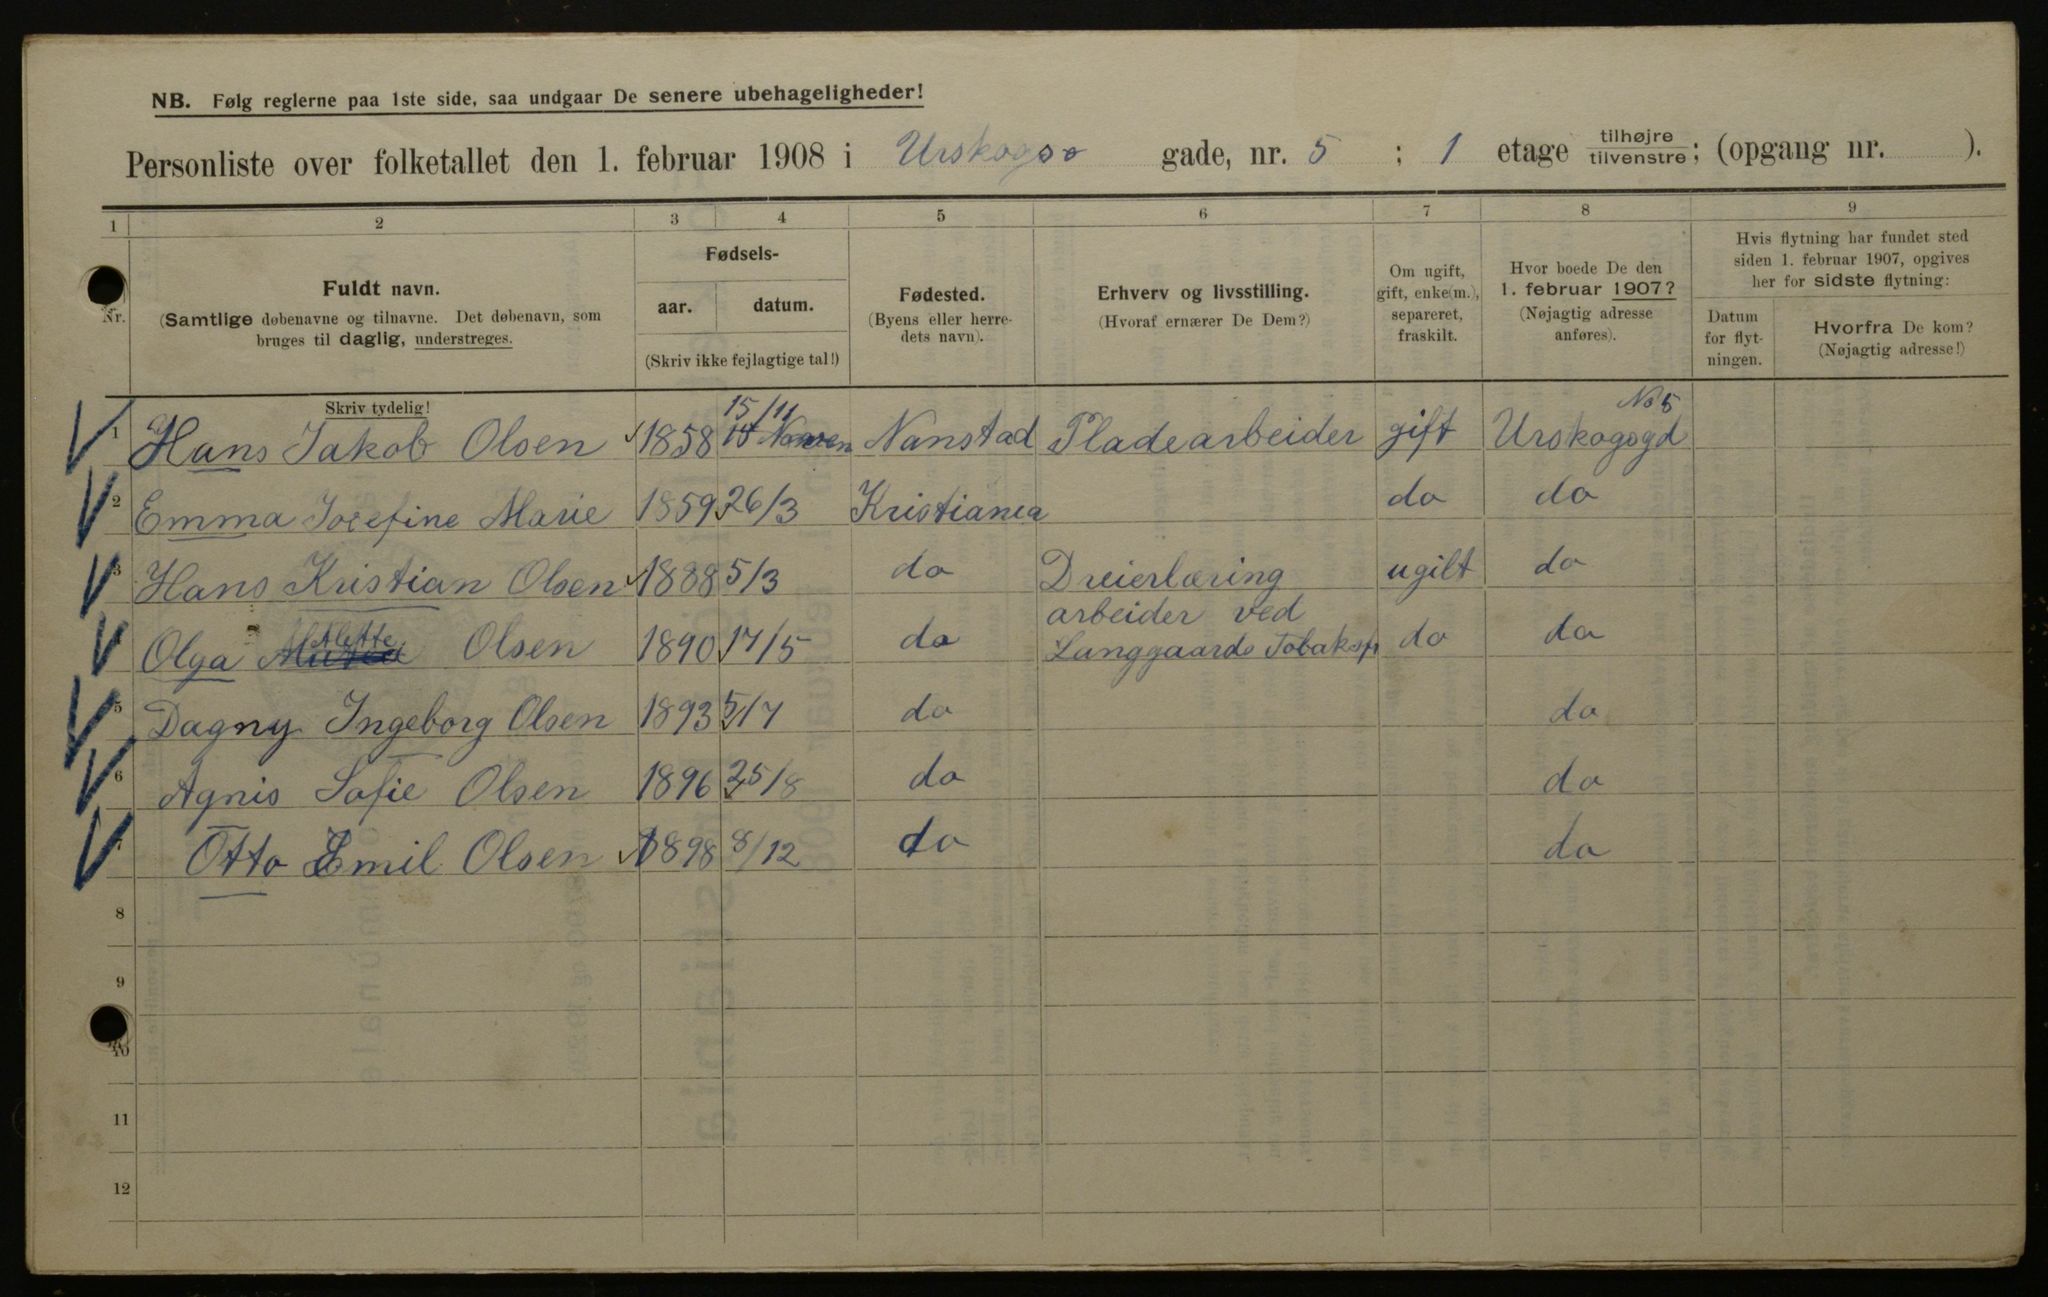 NB. Følg reglerne paa 1ste side, saa undgaar De senere ubehageligheder!
Personliste over folketallet den 1. februar 1908 i Urskogs gade, nr. 5 ; 1 etage tilhøjre tilvenstre; (opgang nr. ).
1 2 3 4 5 6 7 8 9
Nr.
Fuldt navn.
(Samtlige døbenavne og tilnavne. Det døbenavn, som
bruges til daglig, understreges.
Skriv tydelig!
Fødsels-
aar. datum.
(Skriv ikke fejlagtige tal!)
Fødested.
(Byens eller herre-
dets navn).
Erhverv og livsstilling.
(Hvoraf ernærer De Dem?)
Om ugift,
gift, enke(m.),
separeret,
fraskilt.
Hvor boede De den
1. februar 1907?
(Nøjagtig adresse
anføres).
Hvis flytning har fundet sted
siden 1. februar 1907, opgives
her for sidste flytning:
Datum
for flyt-
ningen.
Hvorfra De kom?
(Nøjagtig adresse!)
15/11 No 5
1 Hans Jakob Olsen 1858 Nanstad Pladearbeider gift Urskogsgd
2 Emma Josefine Marie 1859 26/3 Kristiania do do
3 Hans Kristian Olsen 1888 5/3 do Dreierlæring ugift do
arbeider ved
Olga Alette Olsen 1890 17/5 do Langgaards Tobaksf do do
5 Dagny Ingeborg Olsen 1893 5/7 do do
6 Agnis Sofie Olsen 1896 25/8 do do
7 Otto Emil Olsen 1898 8/12 do do
8
9
10
11
12